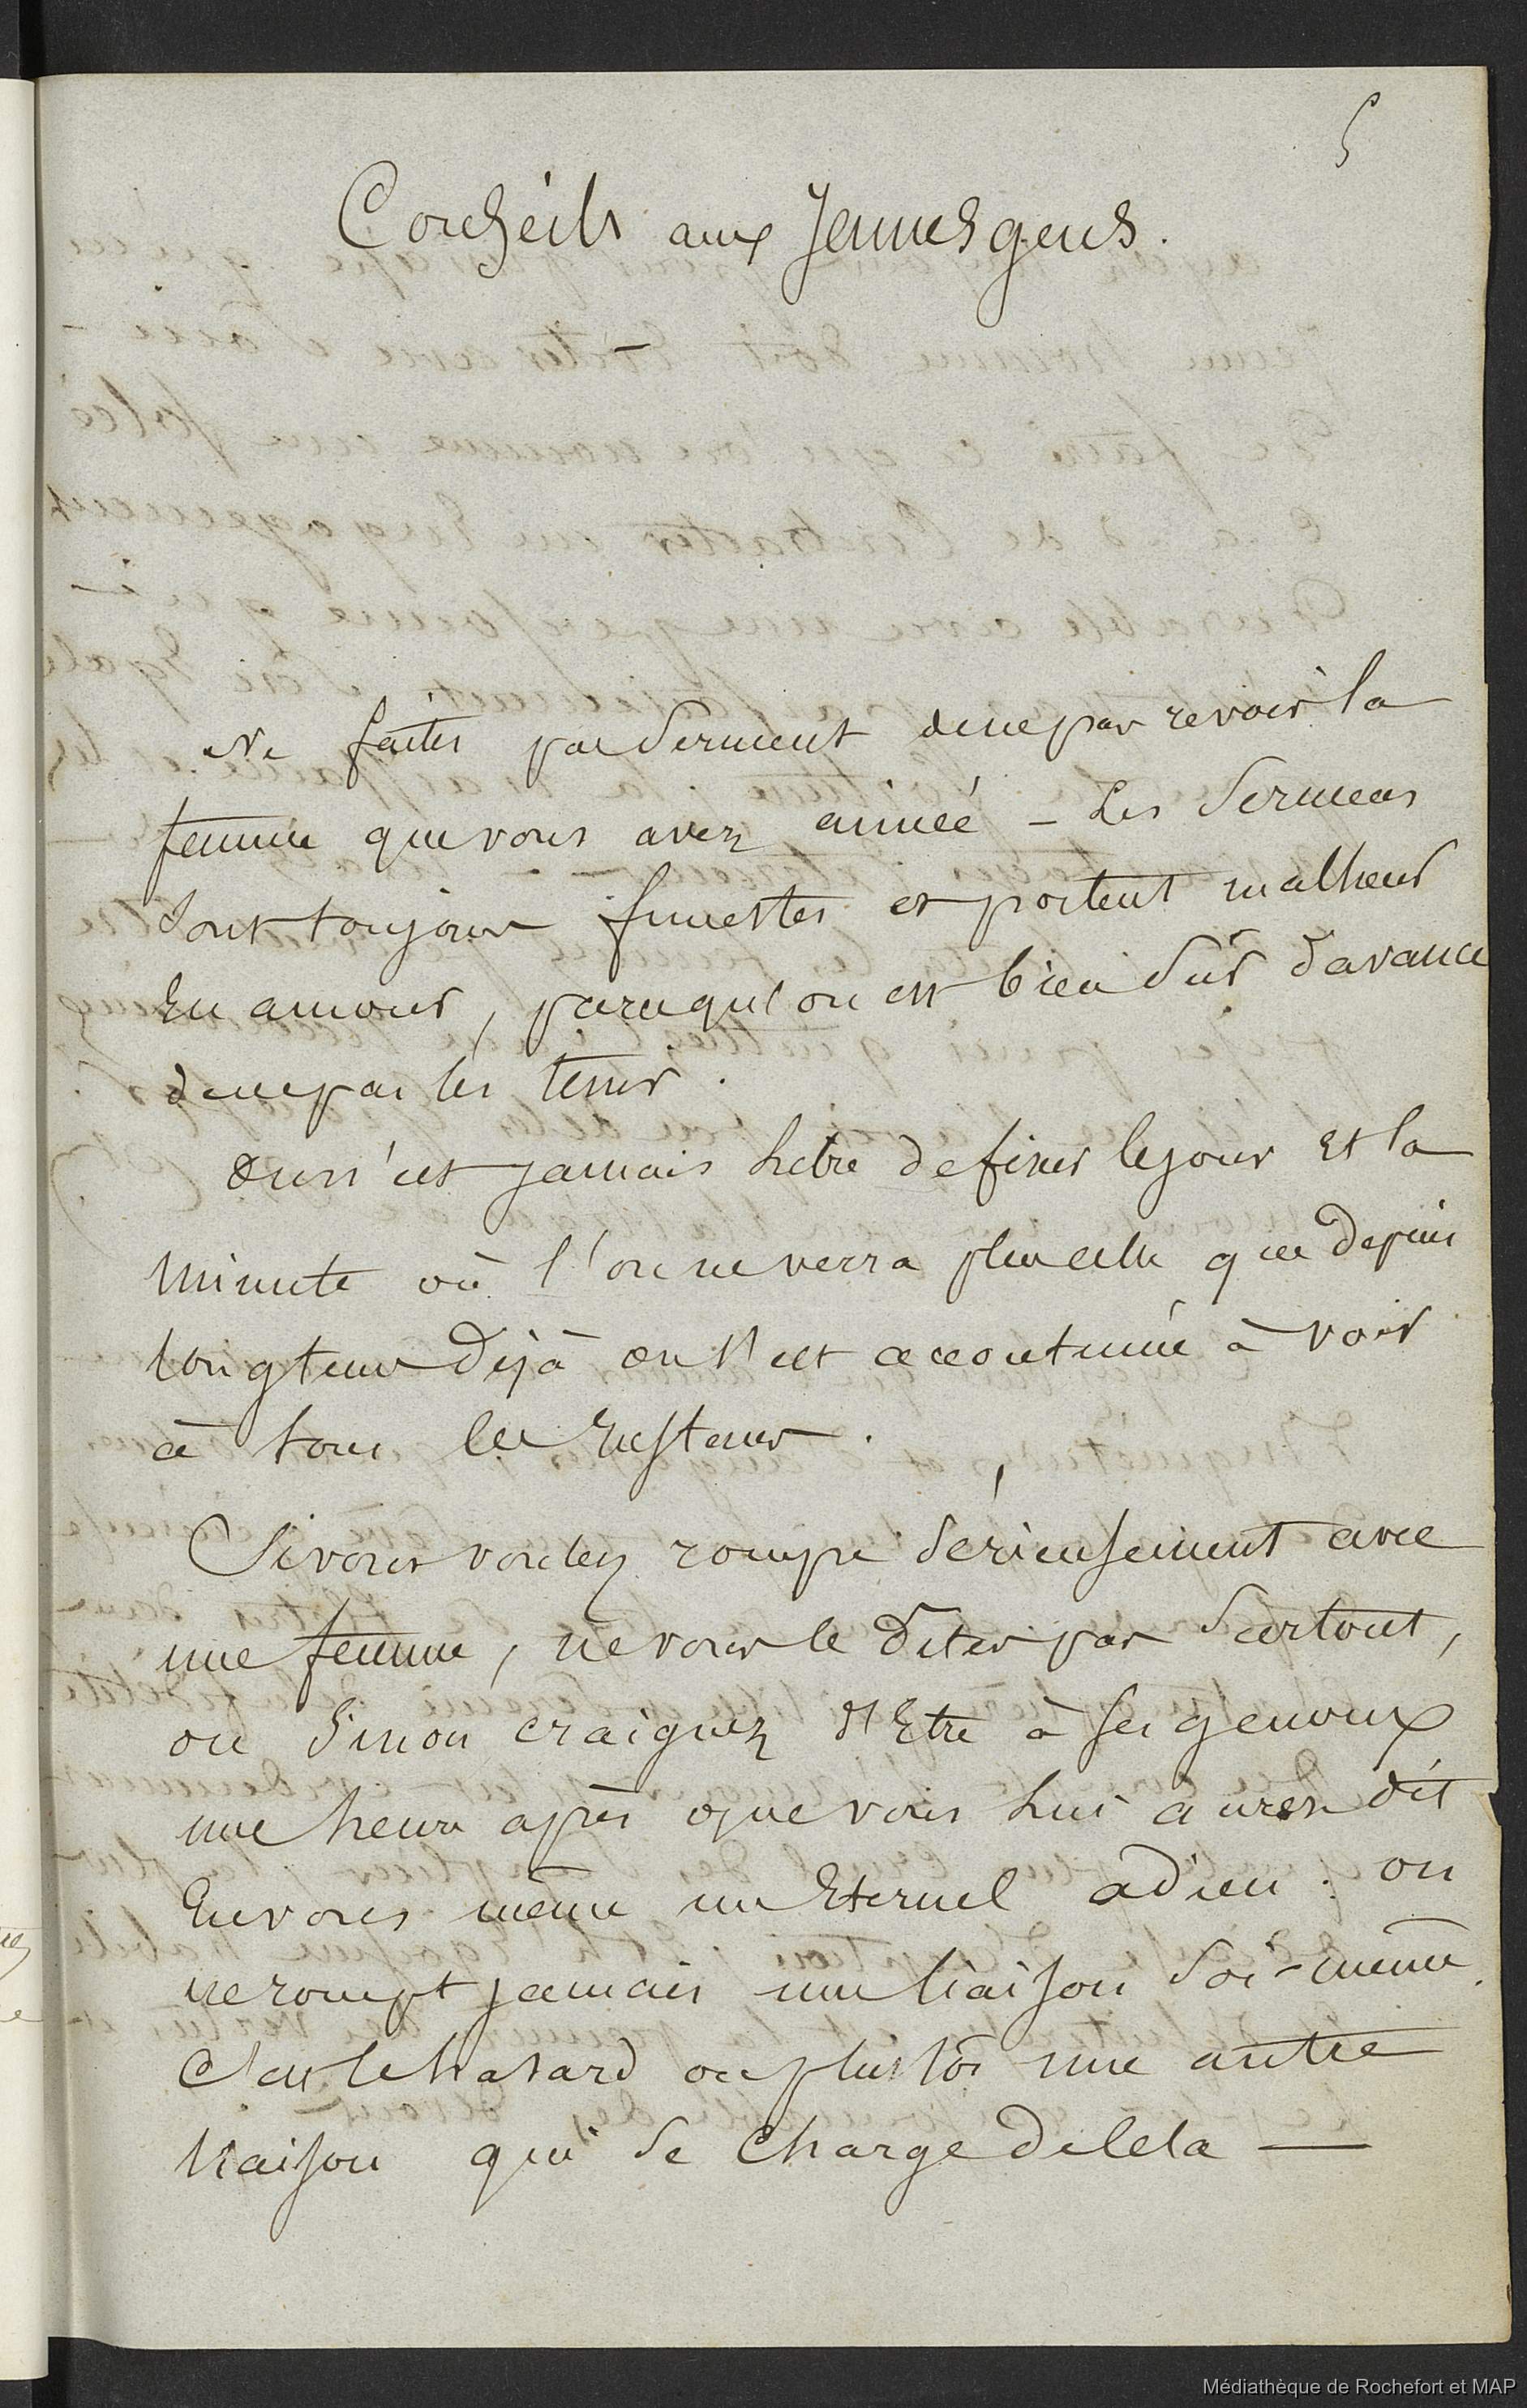 5
Conseils aux Jeunes gens.
Ne faites pas Serment de ne pas revoir la
femme que vous avez aimée — Les Sermens
Sont toujours funestes et portent malheur
En amour, parcequ'on est bien Sûr d'avance
de ne pas les tenir.
On n'est jamais libre de fixer le jour Et la
Minute où l'on ne verra plus celle que depuis
longtems Déjà on s'est accoutumé à voir
à tous les Instans.
Si vous voulez rompre Sérieusement avec
une femme, ne vous le Dites pas Surtout,
ou Sinon craignez d'Etre à ses genoux
une heure après que vous lui aurez dit
En vous même un Eternel adieu. on
ne rompt jamais une liaison Soi-même.
C'est le hasard ou plustôt une autre
liaison qui Se Charge de cela —
Médiathèque de Rochefort et MAP